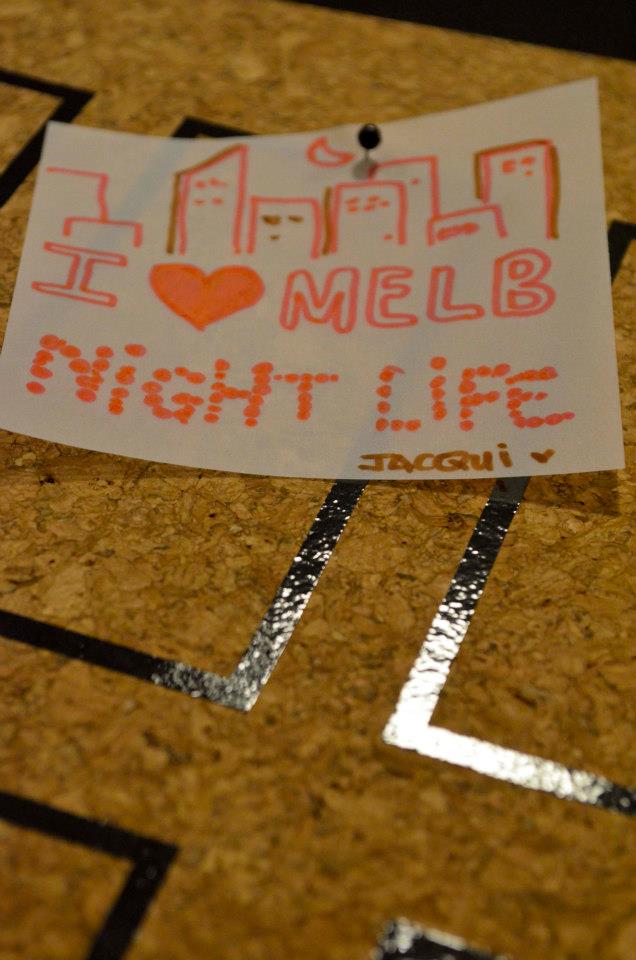 I ❤ MELB
NIGHT LIFE
JACQUI ♥